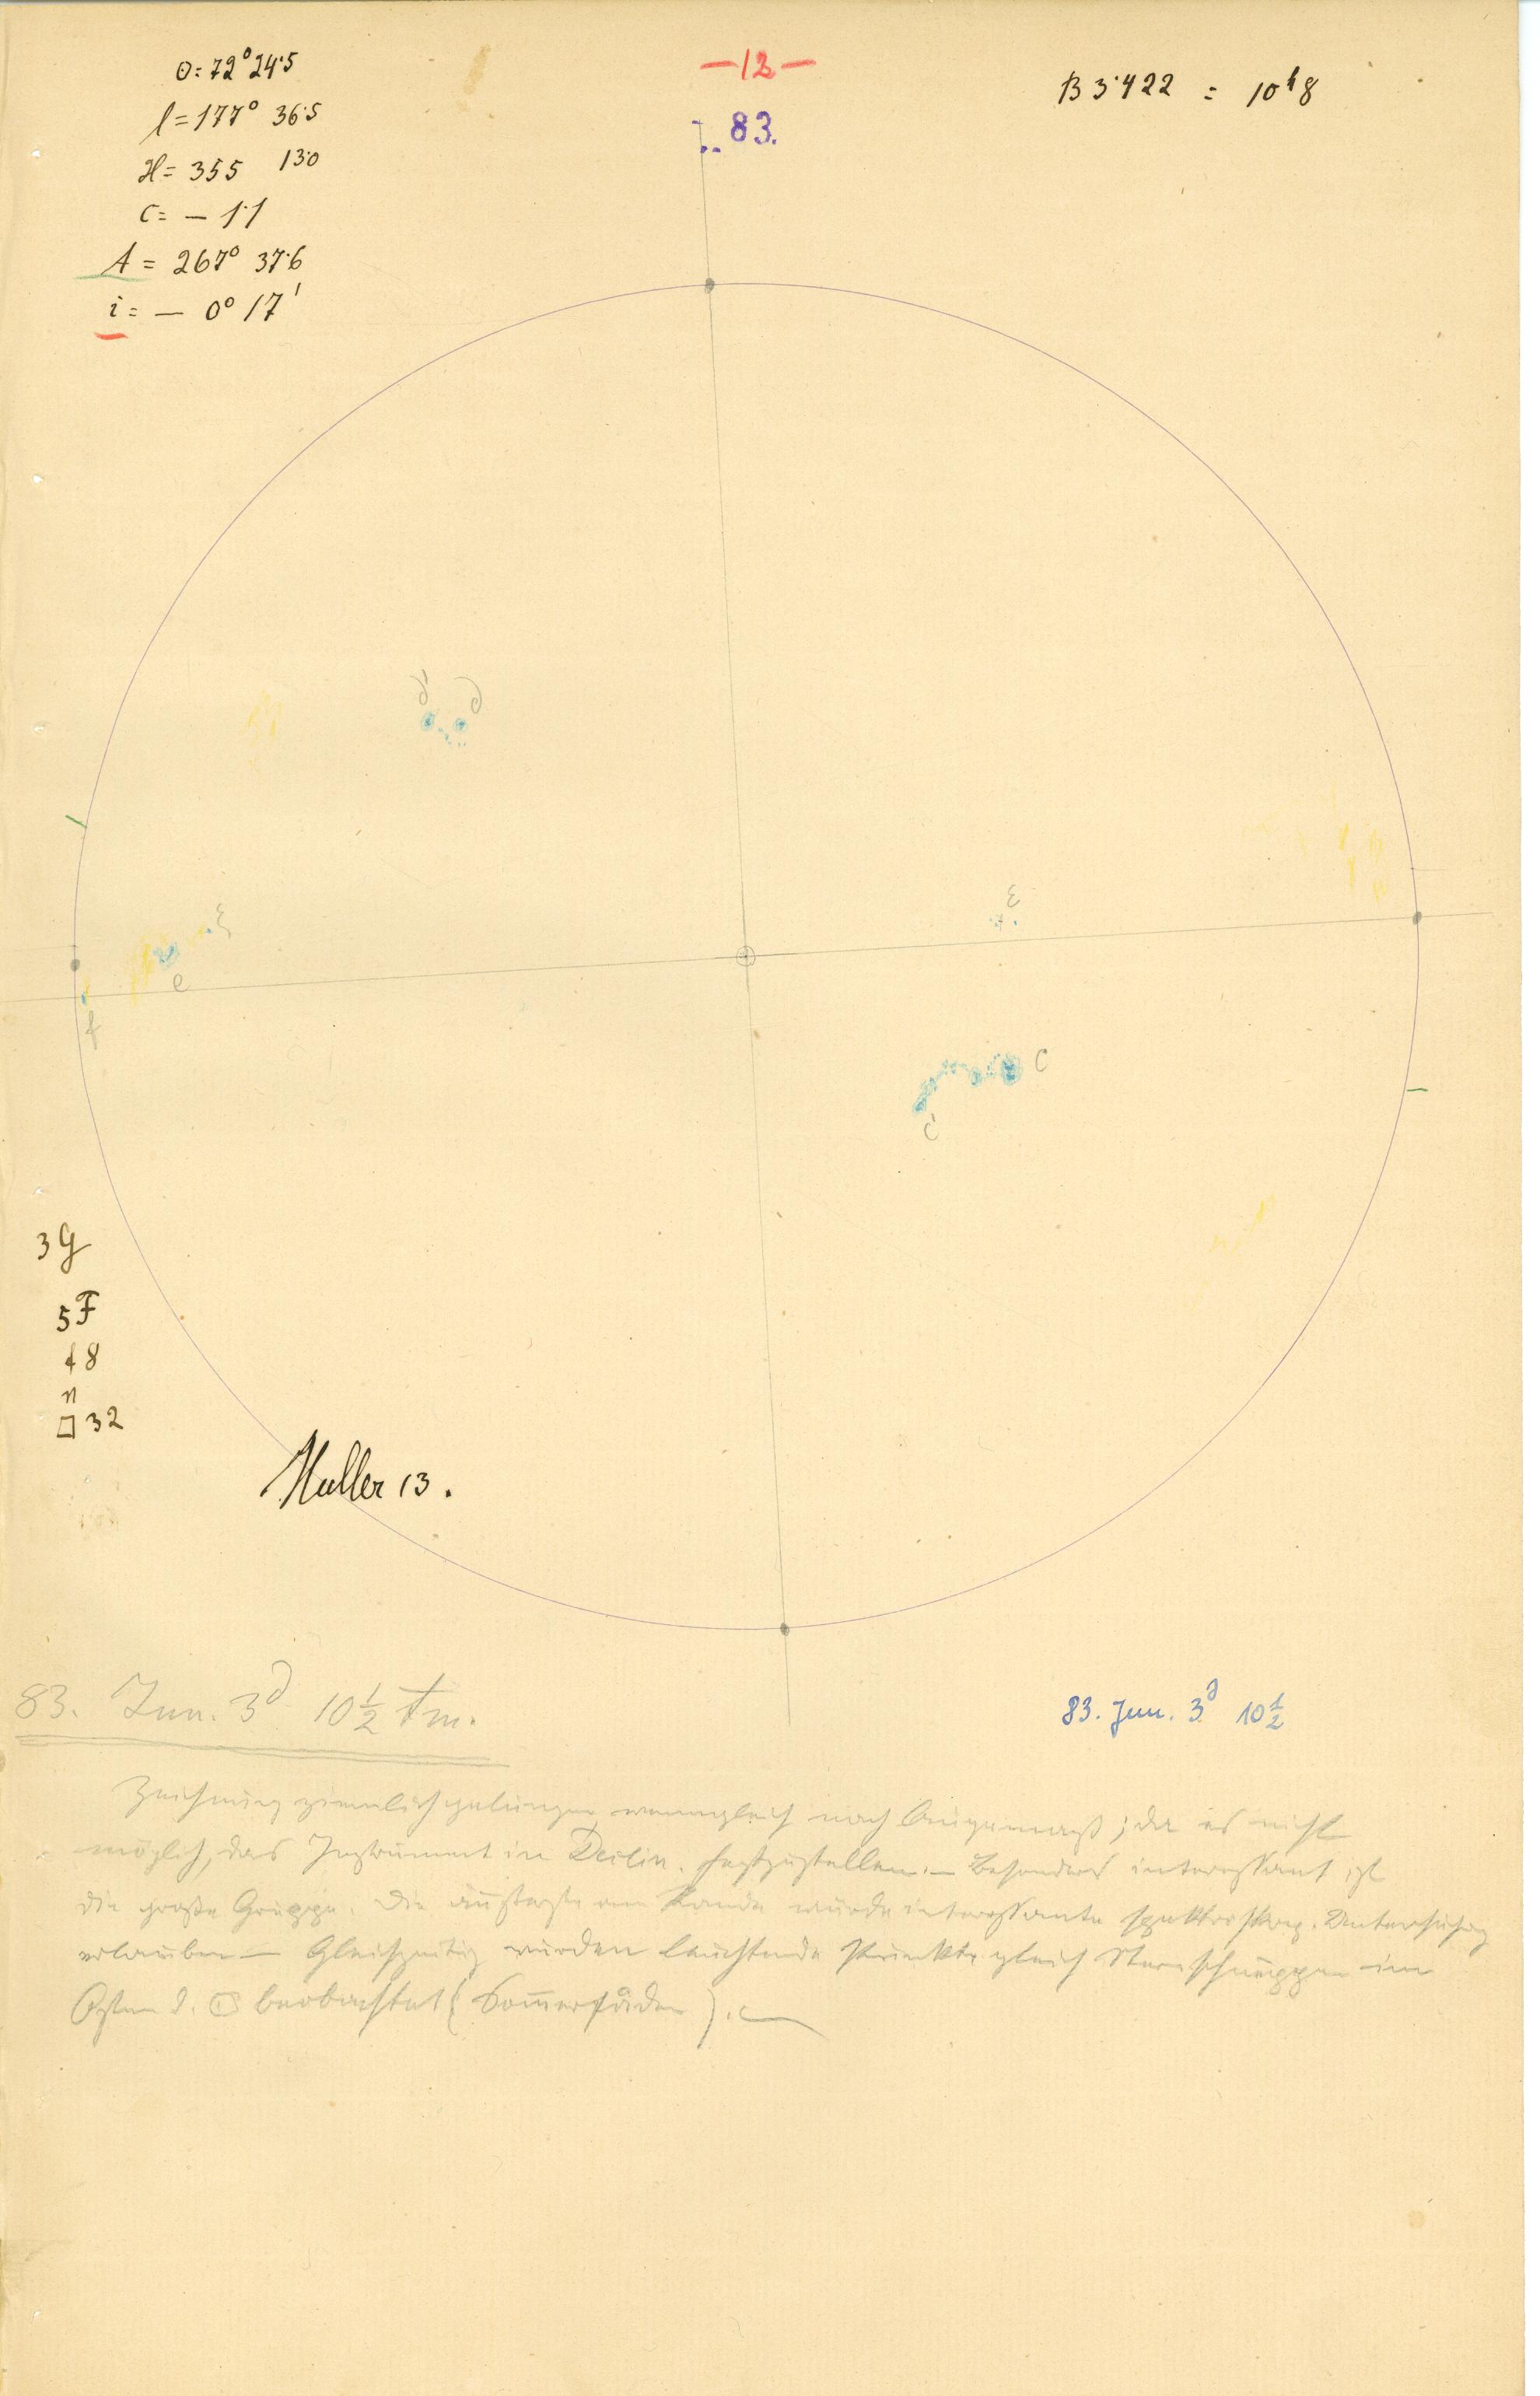 ⊙ = 72° 24'5
l = 177° 36'5
H = 355 13'0
C = — 1'1
A = 267° 37'6
i = — 0° 17'
—13—
83.
B 3·422 = 10ʰ8
γ' δ
ξ
e
f
ε
c
c'
3 g
5 F
f 8
n
□ 32
Muller 13.
83. Jun. 3ᵈ 10½ Am.
83. Jun. 3ᵈ 10½
Zeichnung ziemlich gelungen, wenngleich nach Augenmaß; da es nicht
möglich, das Instrument in Declin. festzustellen. — Besonders interessant ist
die große Gruppe. Die äußerste am Rande würde interessante spektroskop. Untersuchung
erlauben — Gleichzeitig wurden leuchtende Punkte gleich Sternschnuppen im
Osten d. ⊙ beobachtet (Sommerfäden).